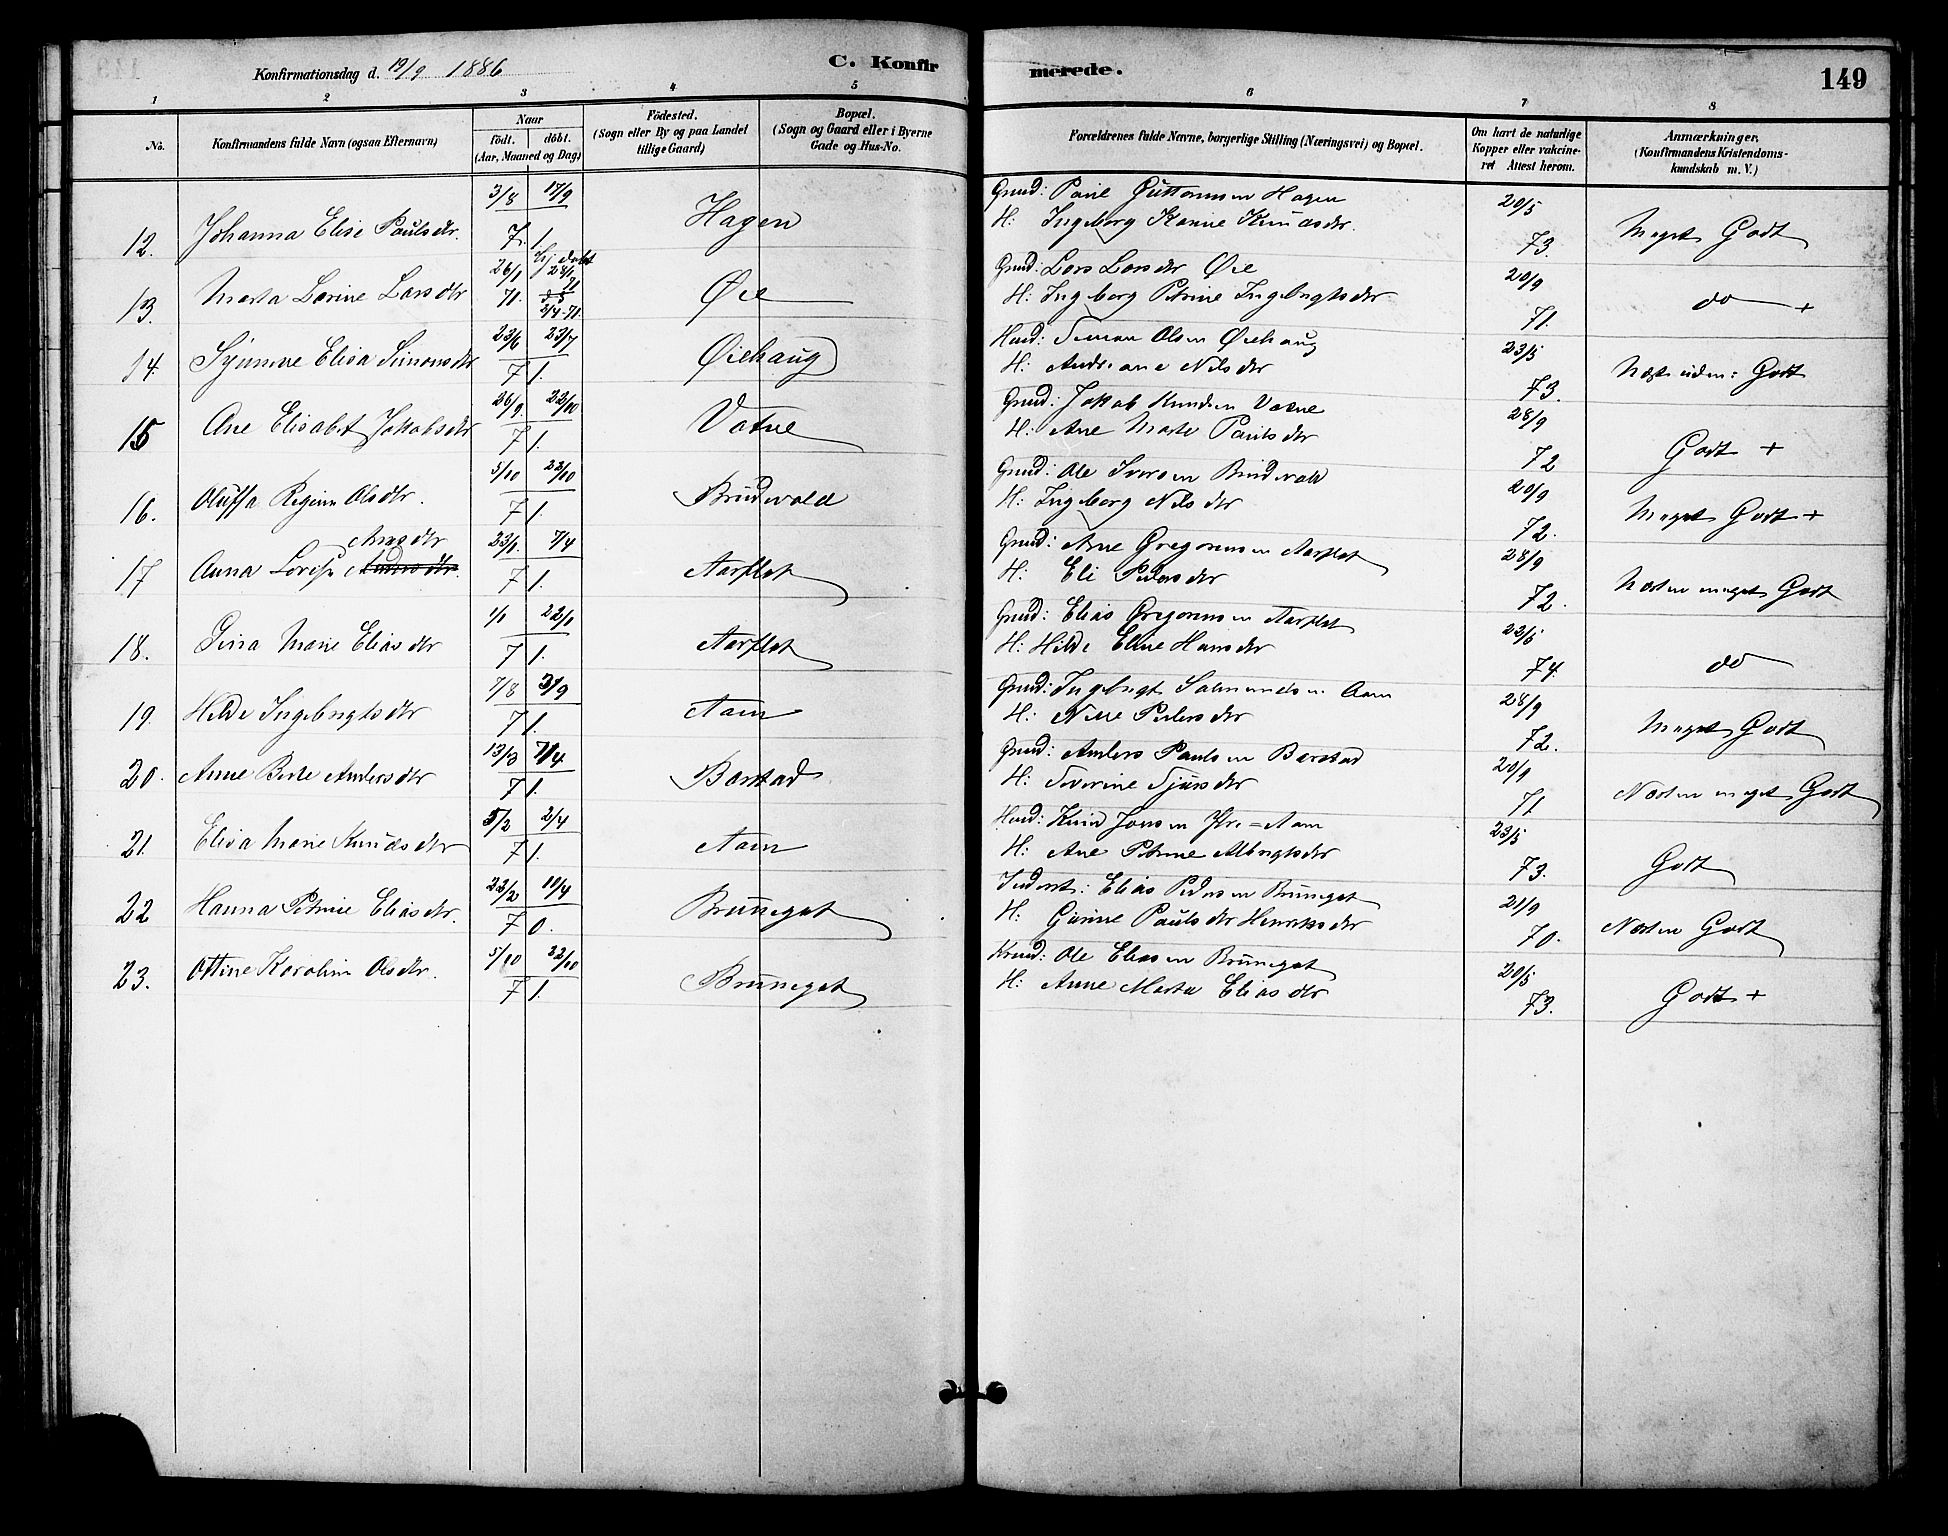 Konfirmationsdag d. 19/9 1886
C. Konfirmerede.
149
1 2 3 4 5 6 7 8
No.
Konfirmandens fulde Navn (ogsaa Efternavn)
Naar
födt. döbt.
(Aar, Maaned og Dag)
Födested.
(Sogn eller By og paa Landet tillige Gaard)
Bopæl.
(Sogn og Gaard eller i Byerne Gade og Hus-No.
Forældrenes fulde Navne, borgerlige Stilling (Næringsvei) og Bopæl.
Om havt de naturlige Kopper eller vakcineret Attest herom.
Anmærkninger.
(Konfirmandens Kristendomskundskab m. V.)
12. Johanna Elise Paulsdtr. 3/8 17/9 71. Hagen
Grmd: Paul Guttormsen Hagen 20/5
H: Ingeborg Karine Knudsdtr. 73. Meget Godt
13. Marta Larine Larsdtr 26/1 71. Hj. døbt 28/1 2/4-71. Øie
Grmd: Lars Larsdtr Øie 20/9
H: Ingeborg Petrine Ingebrigtsdtr. 71. do +
14. Synnøve Elisa Simonsdtr 23/6 23/7 71. Øiehaug
Husmd: Simon Olsen Øiehaug 23/5
H: Andreane Nilsdtr 73. Godt
15 Ane Elisabet Jakobsdtr 26/9. 22/10 71. Vatne
Grmd: Jakob Knudsen Vatne 28/9
H: Ane Marte Paulsdtr 72 Godt +
16. Oluffa Regine Olsdtr. 5/10 22/10 71. Brudevold
Grmd: Ole Iversen Brudevold 20/9
H: Ingeborg Nilsdtr 72. Meget Godt +
17 Anna Lovise Arnesdtr 23/1. 7/4 71. Aarflot
Grmd: Arne Gregoriussen Aarflot 28/9
H: Eli Pedersdtr 72. Næsten meget Godt
18. Gina Marie Eliasdtr 1/1 22/1 71. Aarflot
Grmd: Elias Gregoriussen Aarflot 23/5
H: Hilde Eline Hansdtr 74. do
19. Hilde Ingebrigtsdtr 7/8 3/9 71. Aam
Grmd: Ingebrigt Salmundsen Aam 28/9
H: Pedersdtr 72. Meget Godt
20. Anne Berte Andersdtr 13/3 7/4 71. Barstad
Grmd: Anders Paulsen Barstad 20/9
H: Severine Sjursdtr 71. Næsten meget Godt
21. Elisa Marie Knudsdtr 5/2 2/4 71. Aam
Husmd: Knud Jonsen Ytre=Aam 23/5
H: Ane Petrine Albrigtsdtr 73. Godt
22 Hanna Petrine Eliasdtr. 23/2 10/4 70. Bruneget
Inderst: Elias Pedersen Bruneget 21/9
H: Gurine Paulsdtr Henriksdtr 70. Næsten Godt
23. Ottine Karoline Olsdtr. 5/10 22/10 71. Bruneget
Ole Eliassen Bruneget 20/5
H: Anne Marta Eliasdtr 73. Godt +